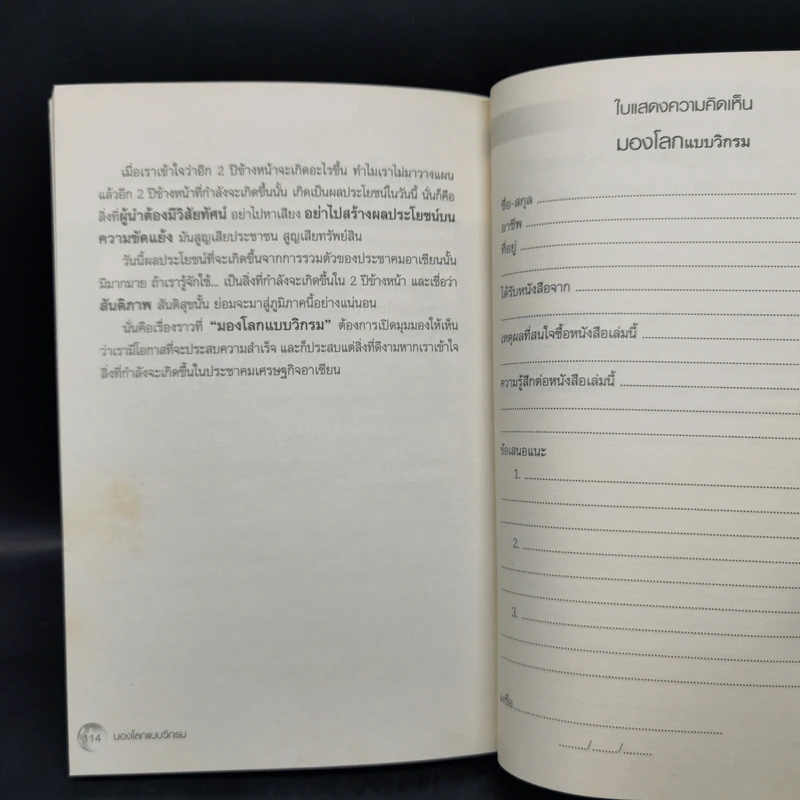 เมื่อเราเข้าใจว่าอีก 2 ปีข้างหน้าจะเกิดอะไรขึ้น ทำไมเราไม่มาวางแผน
แล้วอีก 2 ปีข้างหน้าที่กำลังจะเกิดขึ้นนั้น เกิดเป็นผลประโยชน์ในวันนี้ นั่นก็คือ
สิ่งที่ผู้นำต้องมีวิสัยทัศน์ อย่าไปหาเสียง อย่าไปสร้างผลประโยชน์บน
ความขัดแย้ง มันสูญเสียประชาชน สูญเสียทรัพย์สิน
วันนี้ผลประโยชน์ที่จะเกิดขึ้นจากการรวมตัวของประชาคมอาเซียนนั้น
มีมากมาย ถ้าเรารู้จักใช้... เป็นสิ่งที่กำลังจะเกิดขึ้นใน 2 ปีข้างหน้า และเชื่อว่า
สันติภาพ สันติสุขนั้น ย่อมจะมาสู่ภูมิภาคนี้อย่างแน่นอน
นั่นคือเรื่องราวที่ “มองโลกแบบวิกรม” ต้องการเปิดมุมมองให้เห็น
ว่าเรามีโอกาสที่จะประสบความสำเร็จ และก็ประสบแต่สิ่งที่ดีงามหากเราเข้าใจ
สิ่งที่กำลังจะเกิดขึ้นในประชาคมเศรษฐกิจอาเซียน
114 มองโลกแบบวิกรม
ใบแสดงความคิดเห็น
มองโลกแบบวิกรม
ชื่อ-สกุล
อาชีพ
ที่อยู่
ได้รับหนังสือจาก
เหตุผลที่สนใจซื้อหนังสือเล่มนี้
ความรู้สึกต่อหนังสือเล่มนี้
ข้อเสนอแนะ
1.
2.
3.
ลงชื่อ
......../......../........